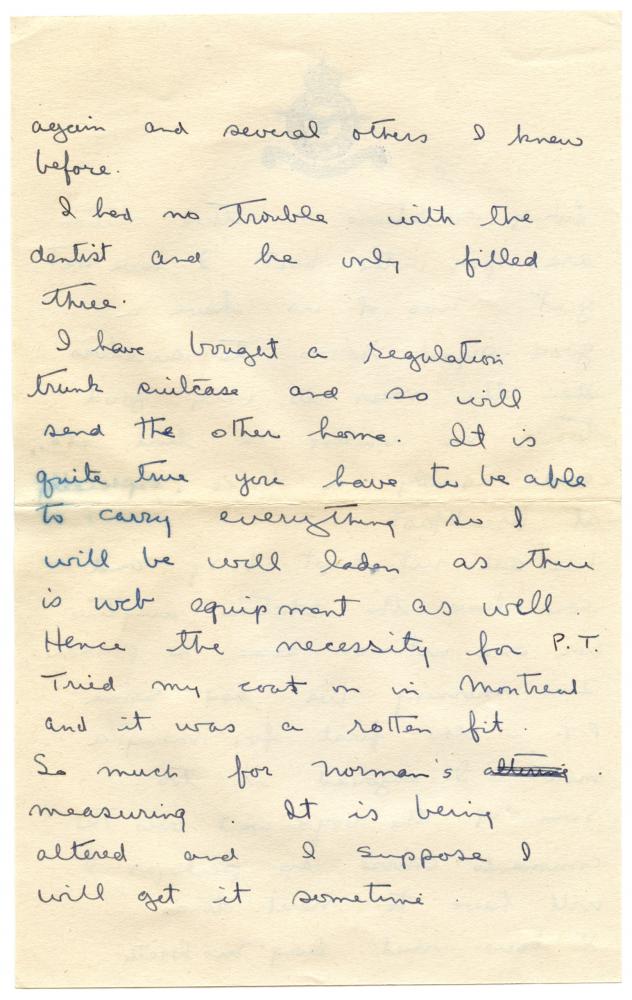 again and several others I knew
before.
I had no trouble with the
dentist and he only filled
three.
I have bought a regulation
trunk suitcase and so will
send the other home. It is
quite true you have to be able
to carry everything so I
will be well laden as there
is web equipment as well.
Hence the necessity for P.T.
Tried my coat on in Montreal
and it was a rotten fit.
So much for Norman's altering
measuring. It is being
altered and I suppose I
will get it sometime.